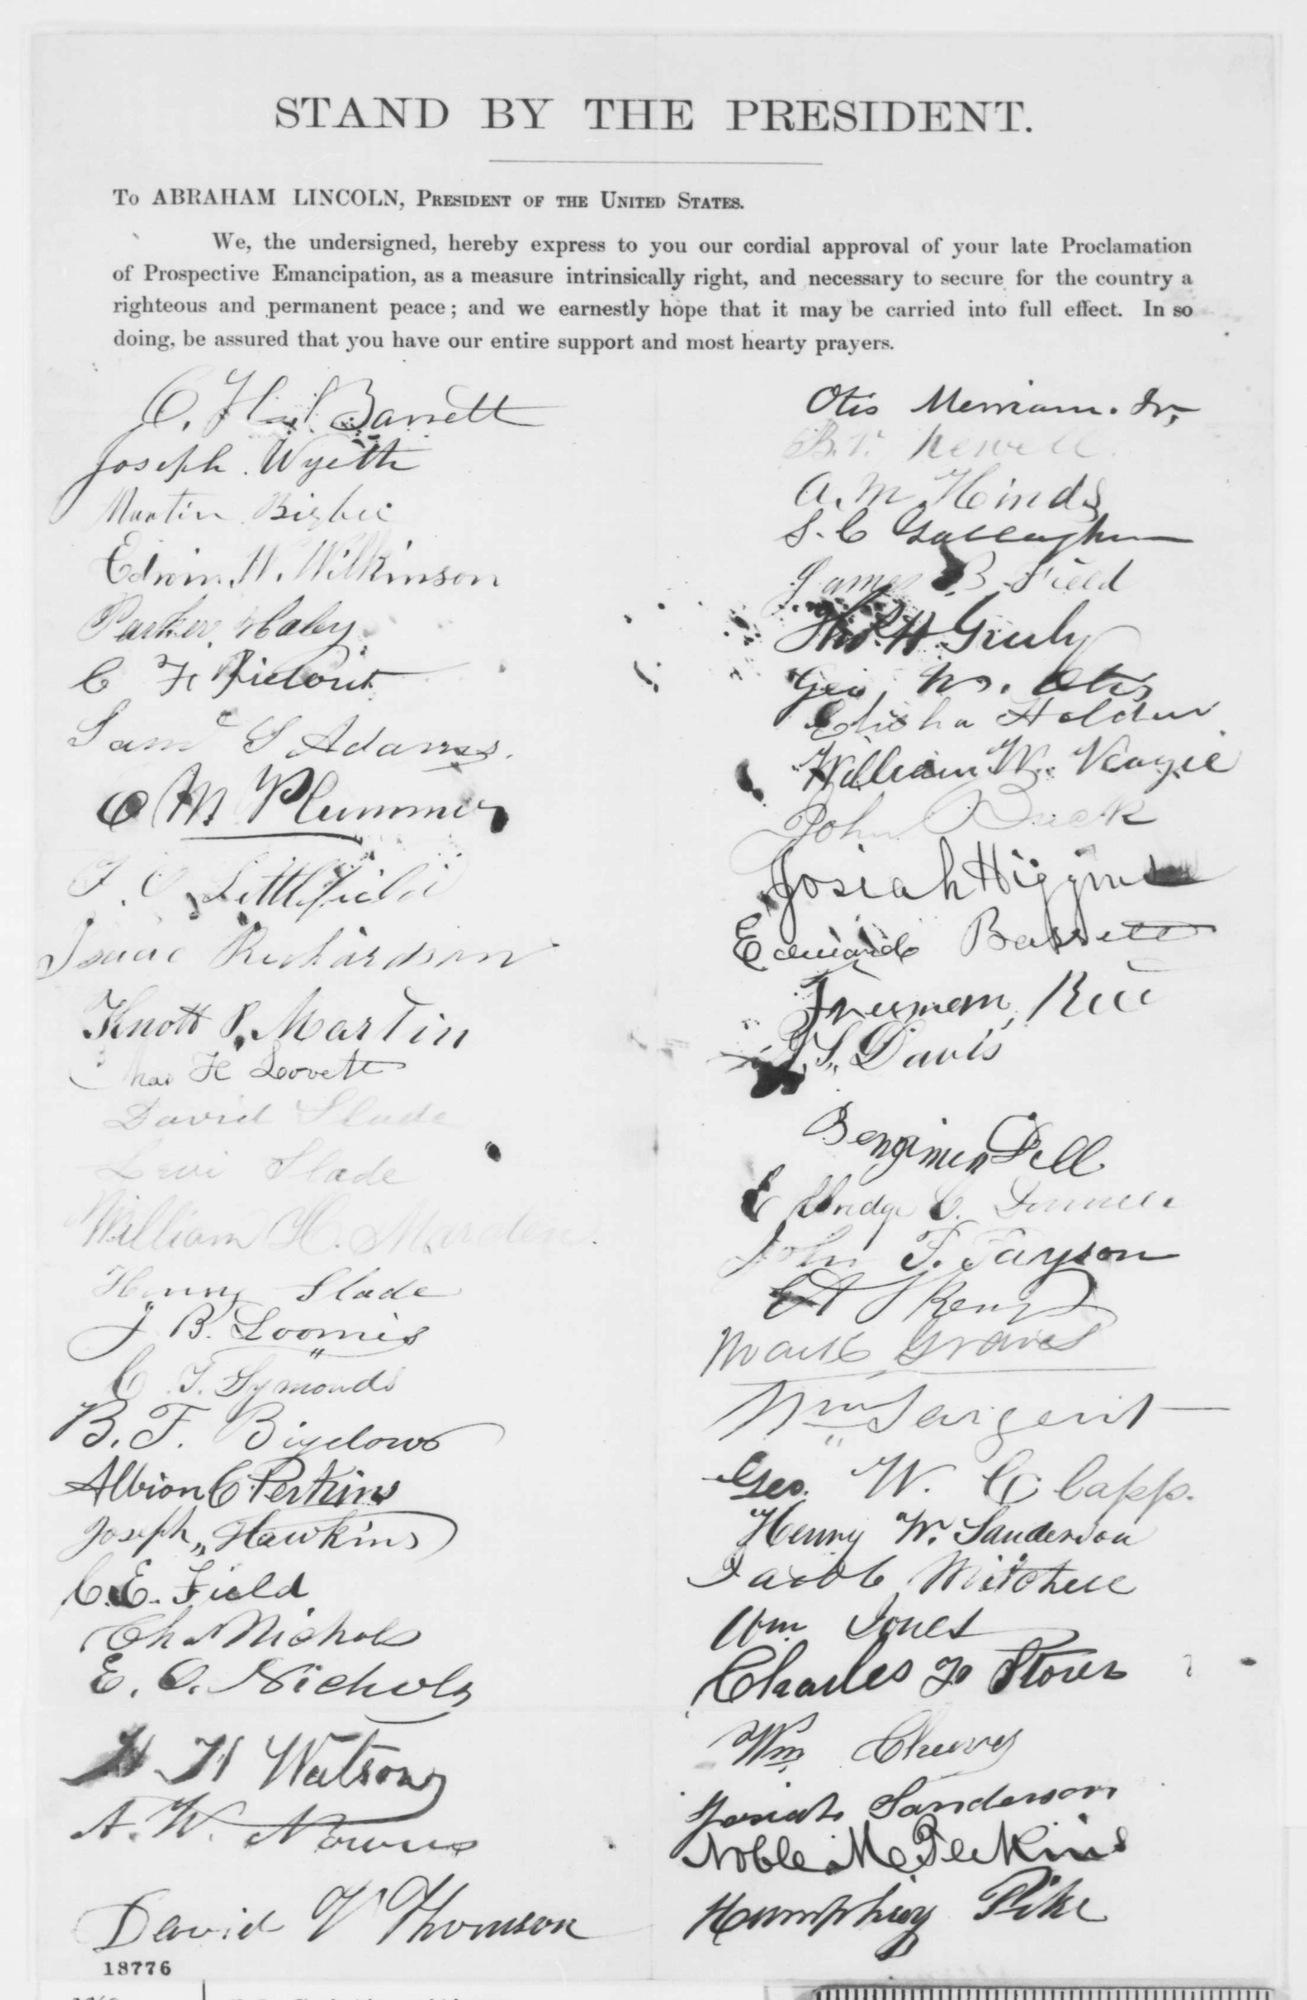 STAND BY THE PRESIDENT.
To ABRAHAM LINCOLN, President of the United States.
We, the undersigned, hereby express to you our cordial approval of your late Proclamation
of Prospective Emancipation, as a measure intrinsically right, and necessary to secure for the country a
righteous and permanent peace; and we earnestly hope that it may be carried into full effect. In so
doing, be assured that you have our entire support and most hearty prayers.
Barrett
Joseph Wyeth
Martin
Edwin W. Wilkinson
Parker
C
Saml S Adams.
C M Plummer
Littlefield
Isaac Richardson
Knott P. Martin
Chas H Lovett
David Slade
Levi Slade
William H. Marden.
Henry Slade
J B. Loomis
C. T. Symonds
B. F. Bigelow
Albion C Perkins
Joseph Hawkins
C. E. Field
Nichols
E. O. Nichols
H H Watson
A. W.
David V Thomson
Otis Merriam. Jr,
Newell.
A. M. Hinds
S. C Gallagher
James B. Field
Thos. H
Geo. W. Otis
Elisha Holden
William W. Veazie
John Buck
Josiah Higgins
Edward Bassett
Freeman Rice
S. Davis
Benjimen Dell
C.
John F. Fayson

Mark Graves
Wm Sargent
Geo. W. Clapp.
Henry W. Sanderson
Jacob Mitchell
Wm Jones
Charles
Wm
Josiah Sanderson
Noble M Perkins
Humphrey Pike
18776